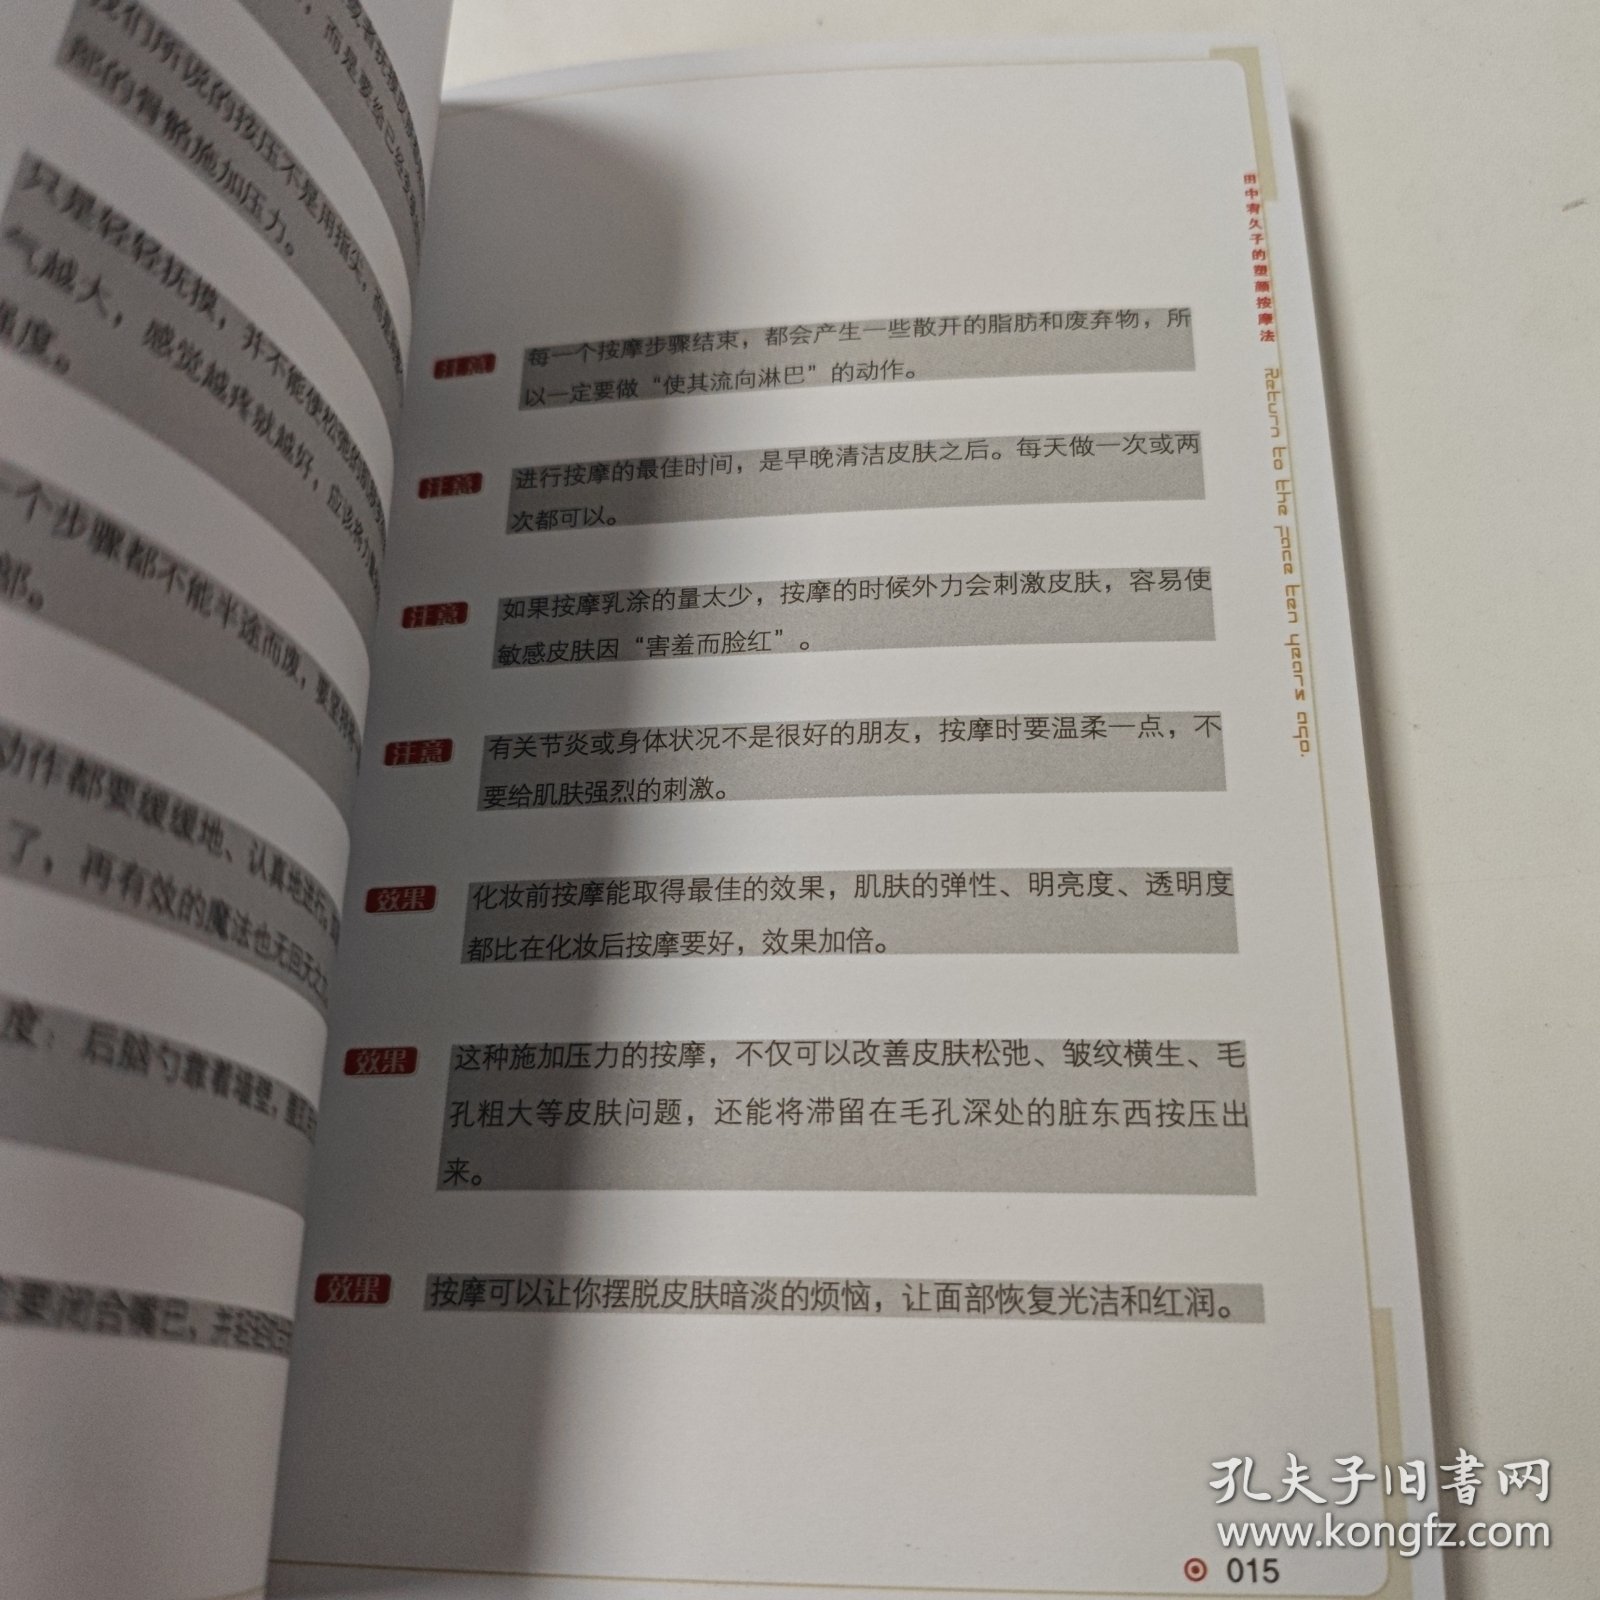 我们所说的按压不是用指尖，而是
部的骨骼施加压力。
只是轻轻抚摸，并不能使松弛的
气越大，感觉越疼就越好，应该将力量
强度。
一个步骤都不能半途而废，要坚持
部。
动作都要缓缓地、认真地进行。
了，再有效的魔法也无回天之
度：后脑勺靠着墙壁，
要闭合嘴巴，并轻轻
田中宥久子的塑颜按摩法 Return to the face ten years ago.
注意 每一个按摩步骤结束，都会产生一些散开的脂肪和废弃物，所
以一定要做“使其流向淋巴”的动作。
注意 进行按摩的最佳时间，是早晚清洁皮肤之后。每天做一次或两
次都可以。
注意 如果按摩乳涂的量太少，按摩的时候外力会刺激皮肤，容易使
敏感皮肤因“害羞而脸红”。
注意 有关节炎或身体状况不是很好的朋友，按摩时要温柔一点，不
要给肌肤强烈的刺激。
效果 化妆前按摩能取得最佳的效果，肌肤的弹性、明亮度、透明度
都比在化妆后按摩要好，效果加倍。
效果 这种施加压力的按摩，不仅可以改善皮肤松弛、皱纹横生、毛
孔粗大等皮肤问题，还能将滞留在毛孔深处的脏东西按压出
来。
效果 按摩可以让你摆脱皮肤暗淡的烦恼，让面部恢复光洁和红润。
015
孔夫子旧书网
www.kongfz.com